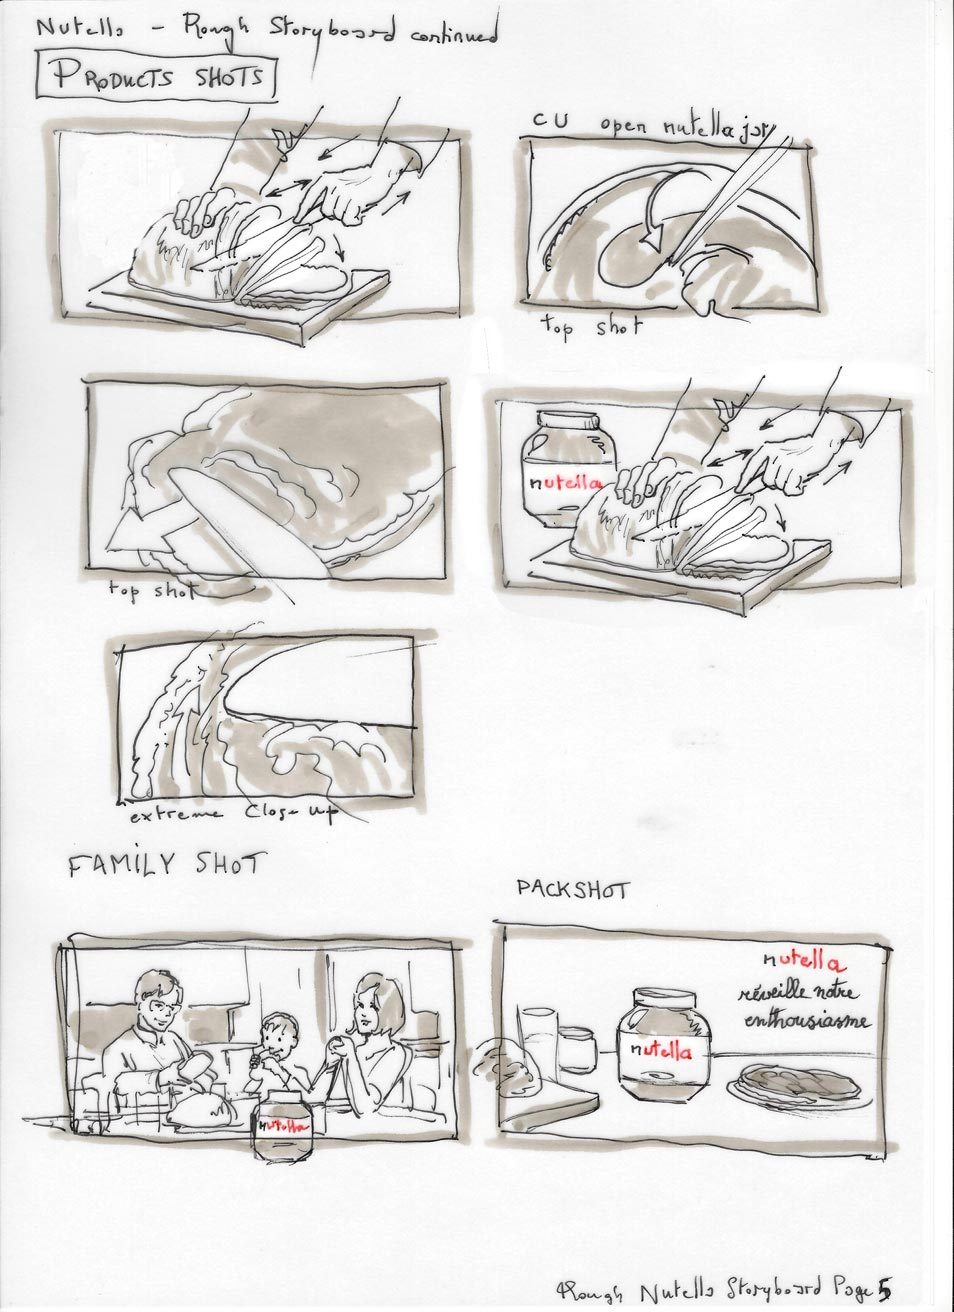 Nutella - Rough Storyboard continued
PRODUCTS SHOTS
CU open nutella jar
top shot
top shot
nutella
extreme Close up
FAMILY SHOT
PACKSHOT
nutella
nutella
réveille notre
enthousiasme
nutella
Rough Nutella Storyboard Page 5